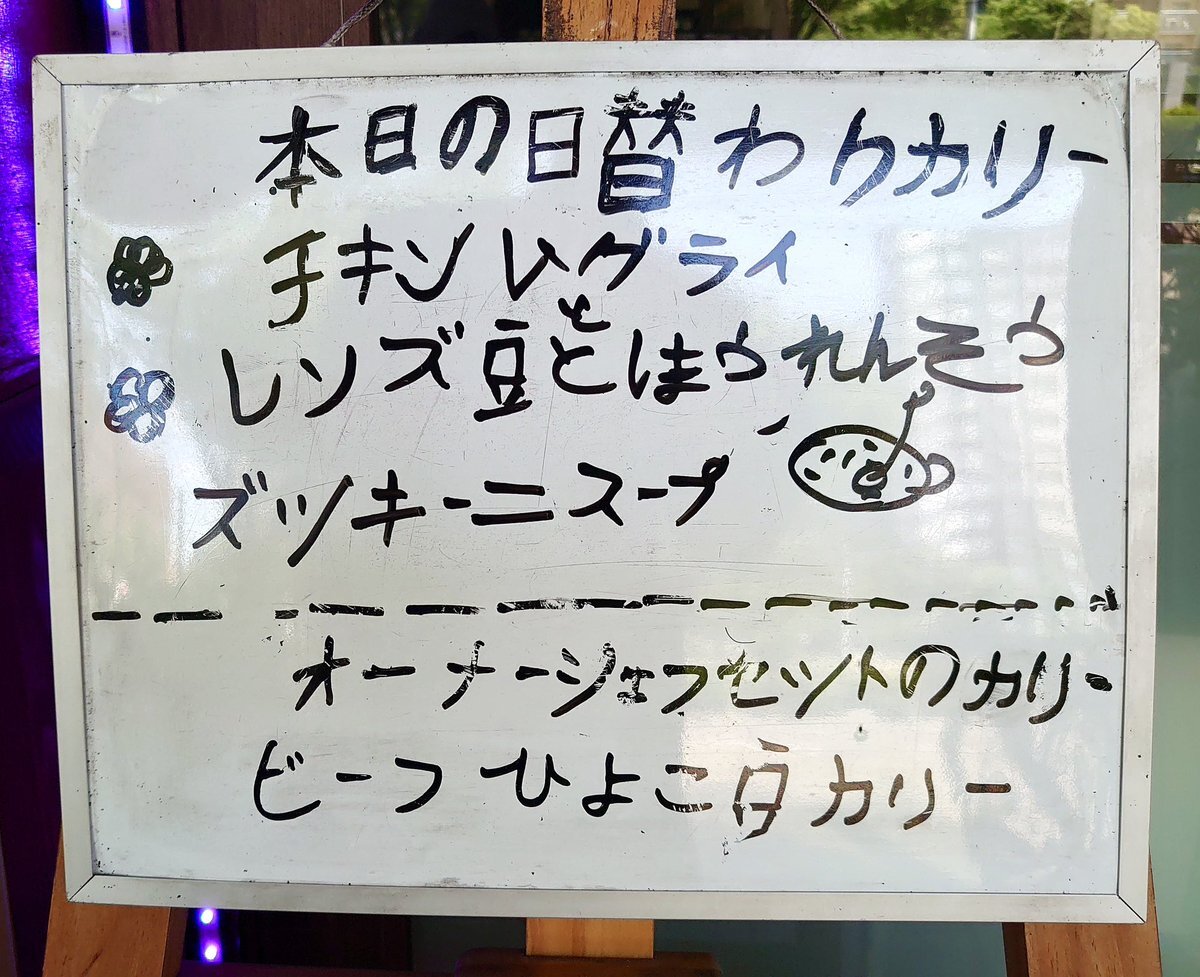 本日の日替わりカリー
チキン
と
レンズ豆とほうれんそう
ズッキーニスープ
オーナーシェフセットのカリー
ビーフ ひよこ豆カリー